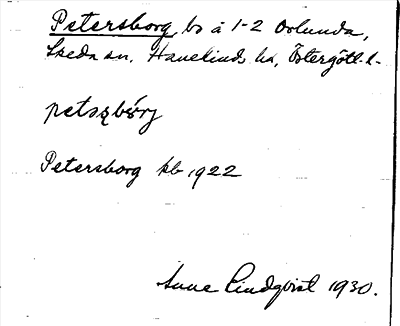 Petersborg, bs å 1-2 Orlunda,
Skeda sn, Hanekinds hd, Östergötl. l.
petsʒbórj
Petersborg kb 1922
Sune Lindqvist 1930.